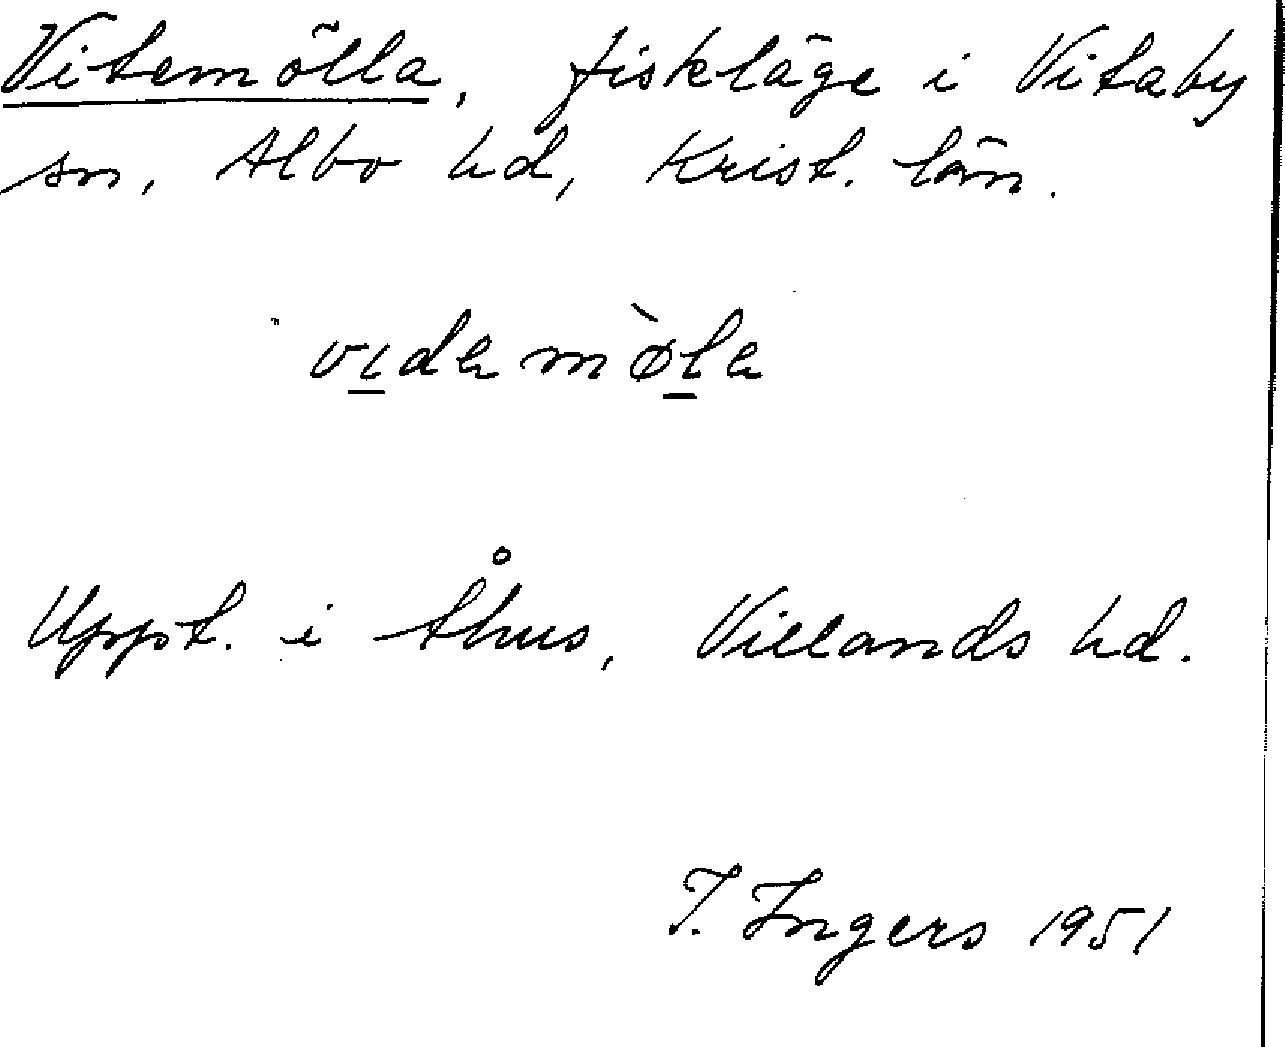 Vitemölla, fiskläge i Vitaby
sn, Albo hd, Krist. län.
vıdamø̀la
Uppt. i Åhus, Villands hd.
I. Ingers 1951